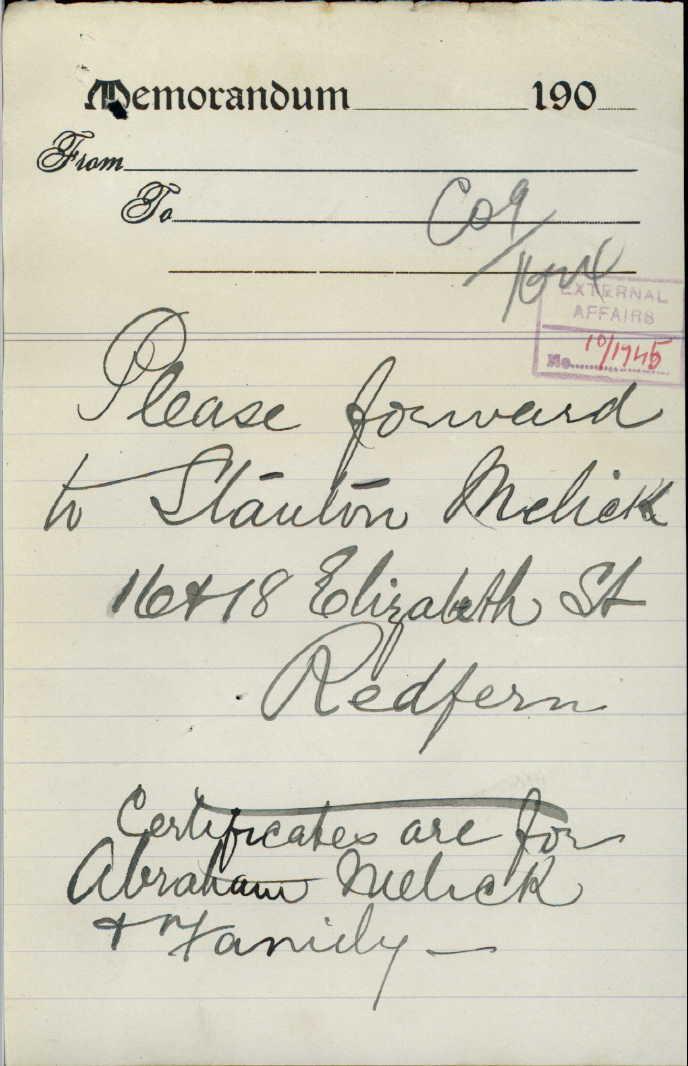 Memorandum 190
From
To
EXTERNAL
AFFAIRS
No. 10/1745
Please forward
to Stanton Melick
16 & 18 Elizabeth St
Redfern
Certificates are for
Abraham Melick
& Family —